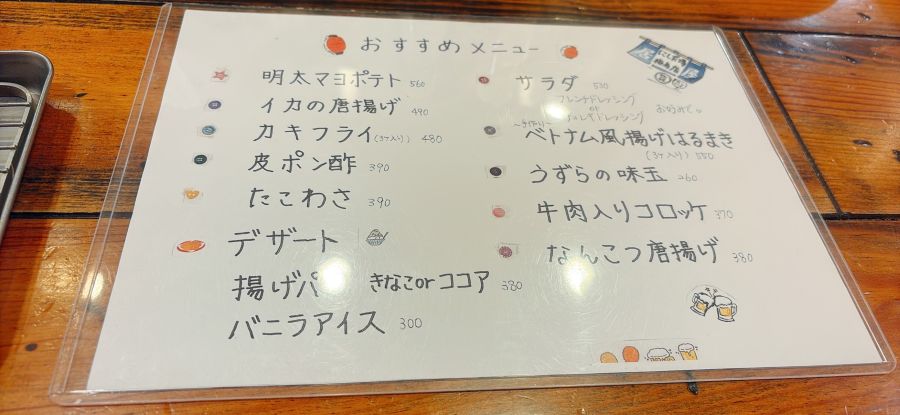 おすすめメニュー
明太マヨポテト 560
イカの唐揚げ 490
カキフライ(3ヶ入り) 480
皮ポン酢 390
たこわさ 390
デザート
揚げパ きなこorココア 380
バニラアイス 300
サラダ 530
フレンチドレッシング
or
ドレッシング
お好みで
〜手作り〜
ベトナム風揚げはるまき
(3ヶ入り) 550
うずらの味玉 260
牛肉入りコロッケ 370
なんこつ唐揚げ 380